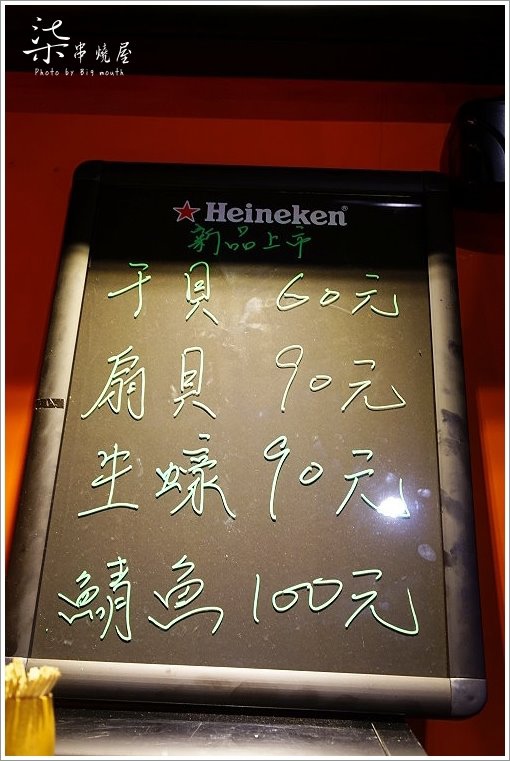 柒串燒屋
Photo by Big mouth
Heineken®
新品上市
干貝 60元
扇貝 90元
生蠔 90元
鯖魚 100元